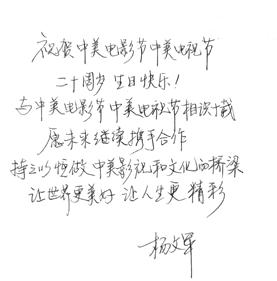 祝贺中美电影节中美电视节
二十周岁 生日快乐!
与中美电影节中美电视节相识十载
愿未来继续携手合作
持之以恒做中美影视和文化的桥梁
让世界更美好 让人生更精彩
杨文军